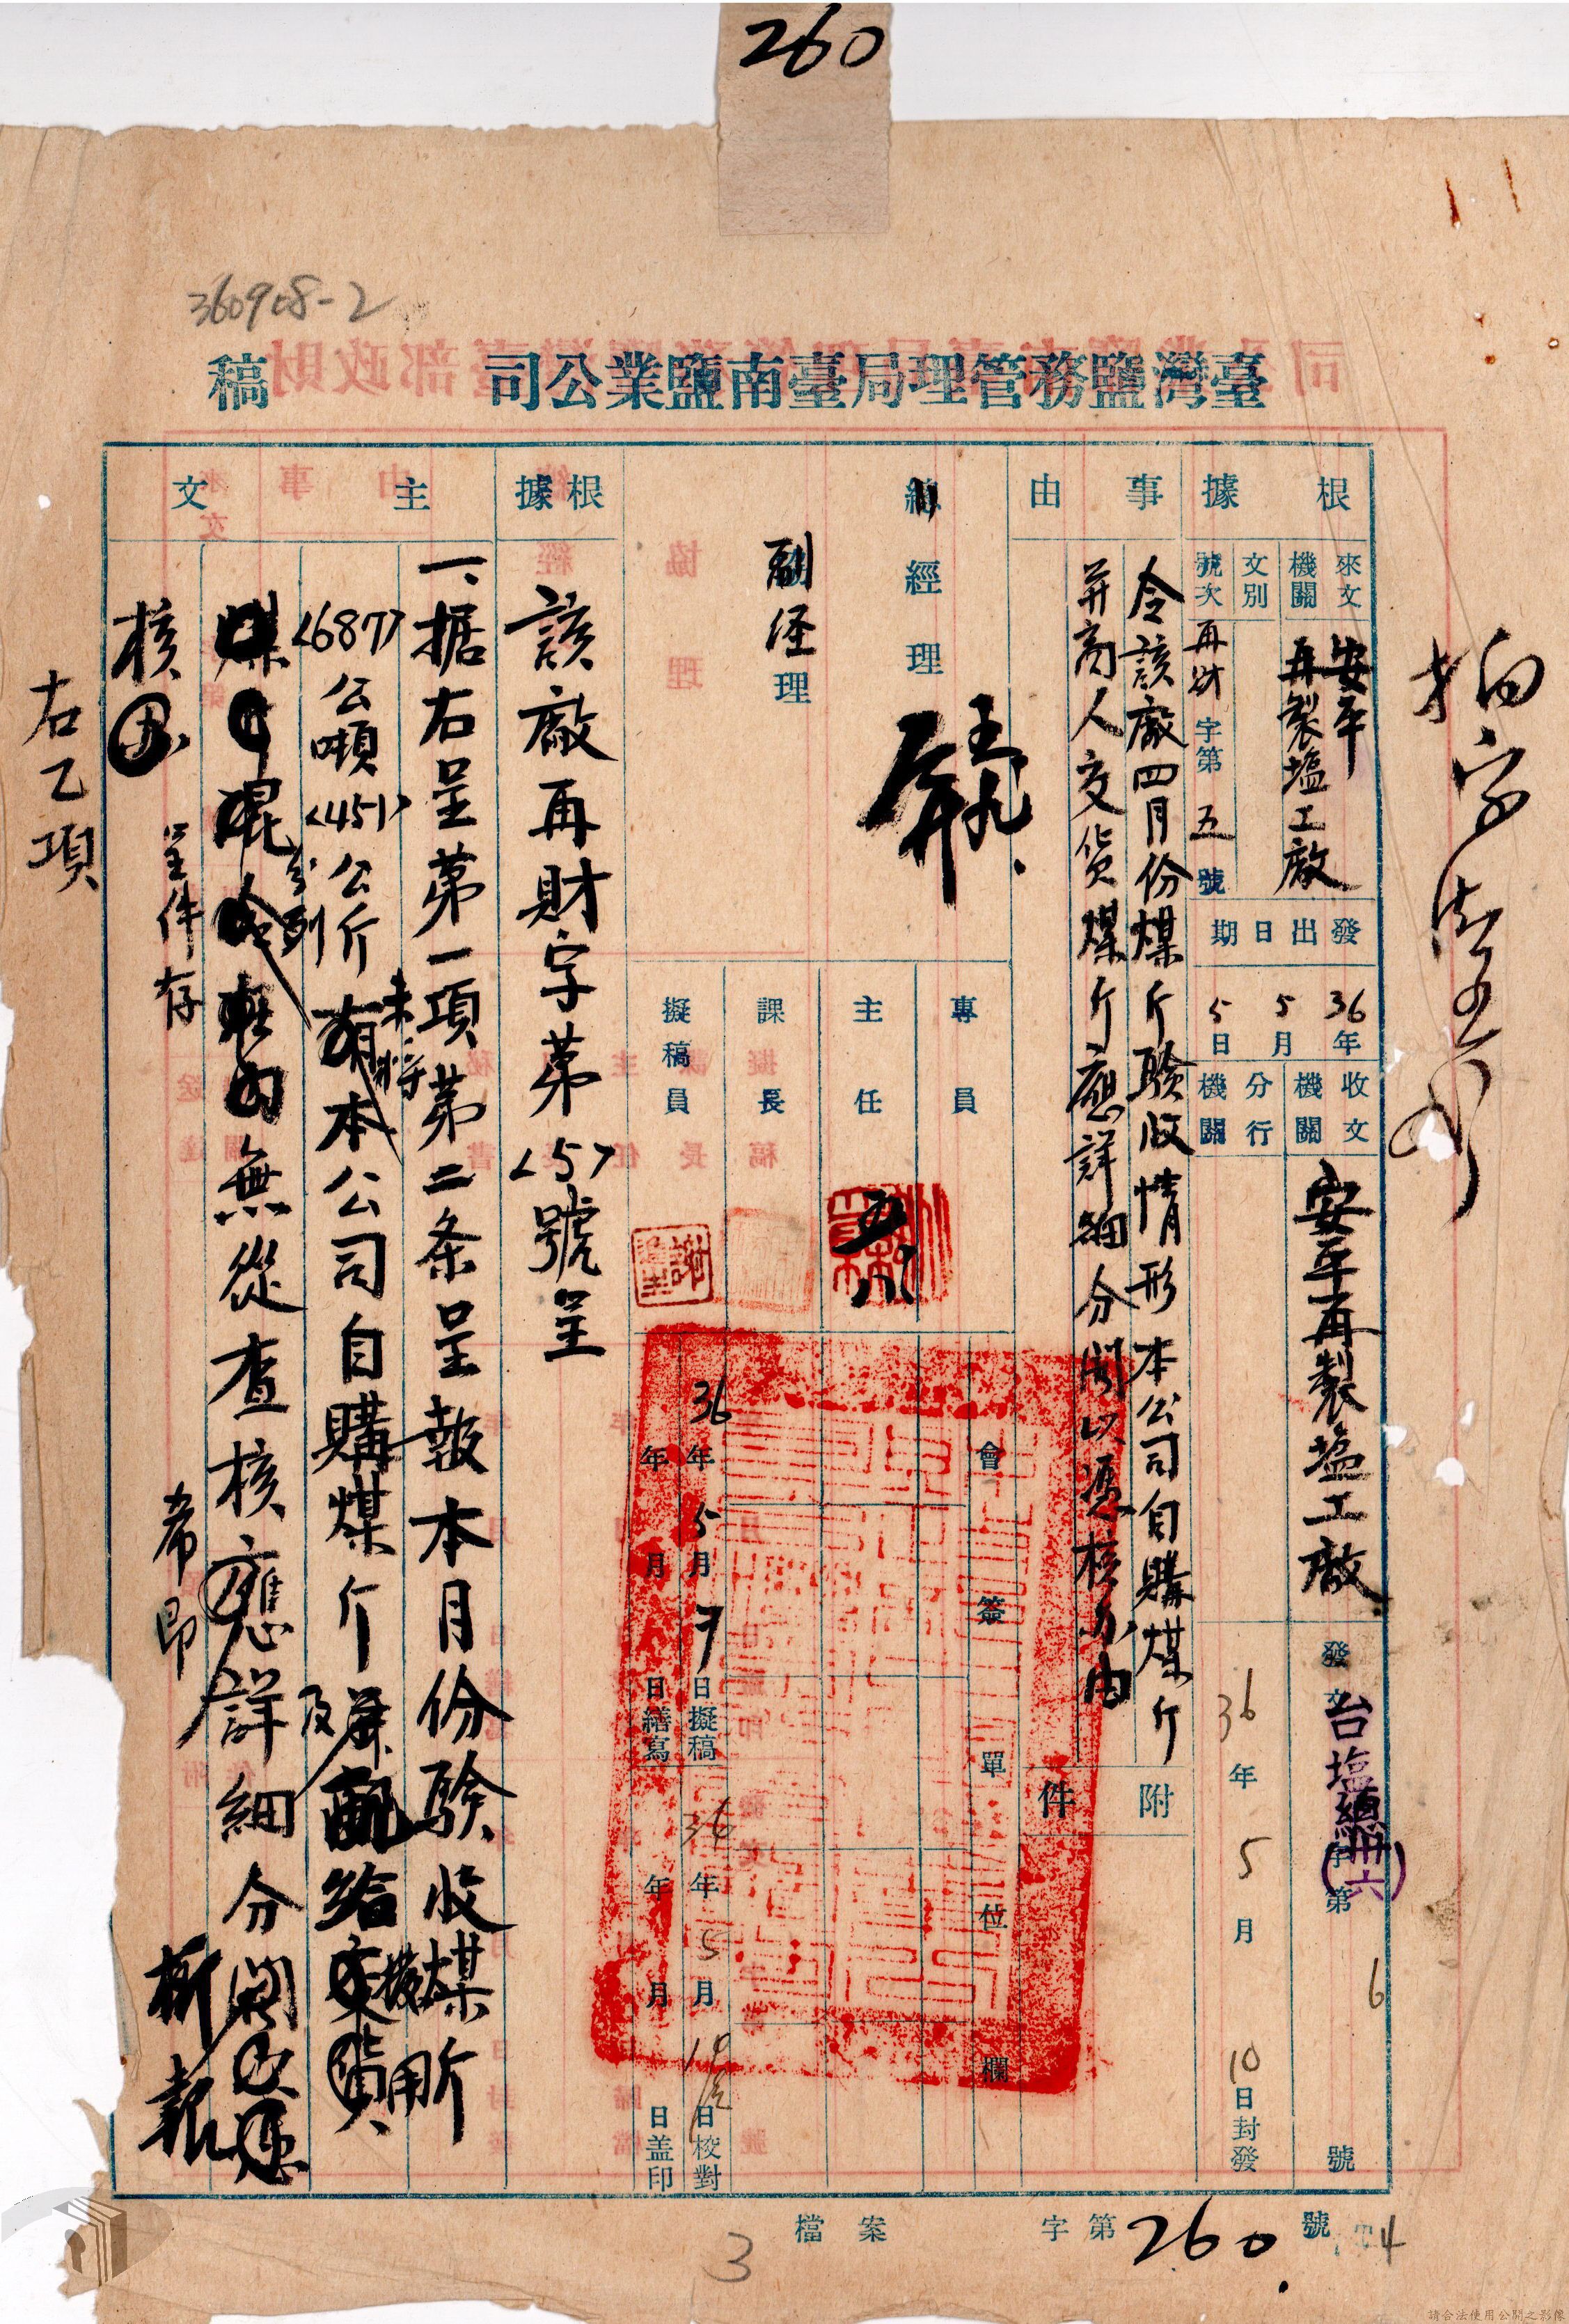 260
360908-2
臺灣鹽務管理局臺南鹽業公司 稿
根據
來文機關
安平再製塩工廠
文別
號次
再財字第五號
發出日期
36年5月5日
收文機關
安平再製塩工廠
分行機關
發文台塩總(卅六)字第 6 號
36年5月10日封發
事由
令該廠四月份煤斤驗收情形本公司自購煤斤
并商人交貨煤斤應詳細分開以憑核办由
附件
總經理
副經理
專員
主任
課長
擬稿員
會簽單位欄
36年5月7日擬稿
年月日繕寫
36年5月10日校對
年月日盖印
根據
該廠再財字第<5>號呈
主文
一、据右呈第一項第二条呈報本月份驗收煤斤
<687>公噸<451>公斤未將本公司自購煤斤及
配給
分列
無從查核應詳細分開
核
呈件存
希即
報
右乙項
檔案 字第260號
3
4
請合法使用公開之影像